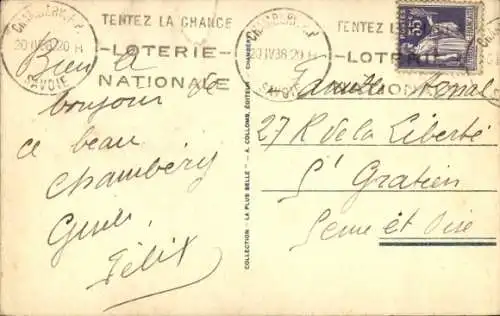 CHAMBERY R.P.
20 IV 38 20 H
SAVOIE
TENTEZ LA CHANCE
LOTERIE
NATIONALE
CHAMBERY R.P.
20 IV 38 20 H
SAVOIE
TENTEZ LA
LOTERIE
POSTES
55
Bien
bonjour de
ce beau
Chambéry
Félix
COLLECTION - LA PLUS BELLE - A. COLLOMB, ÉDITEUR - CHAMBÉRY
Famille
27 R de la Liberté
St Gratien
Seine et Oise